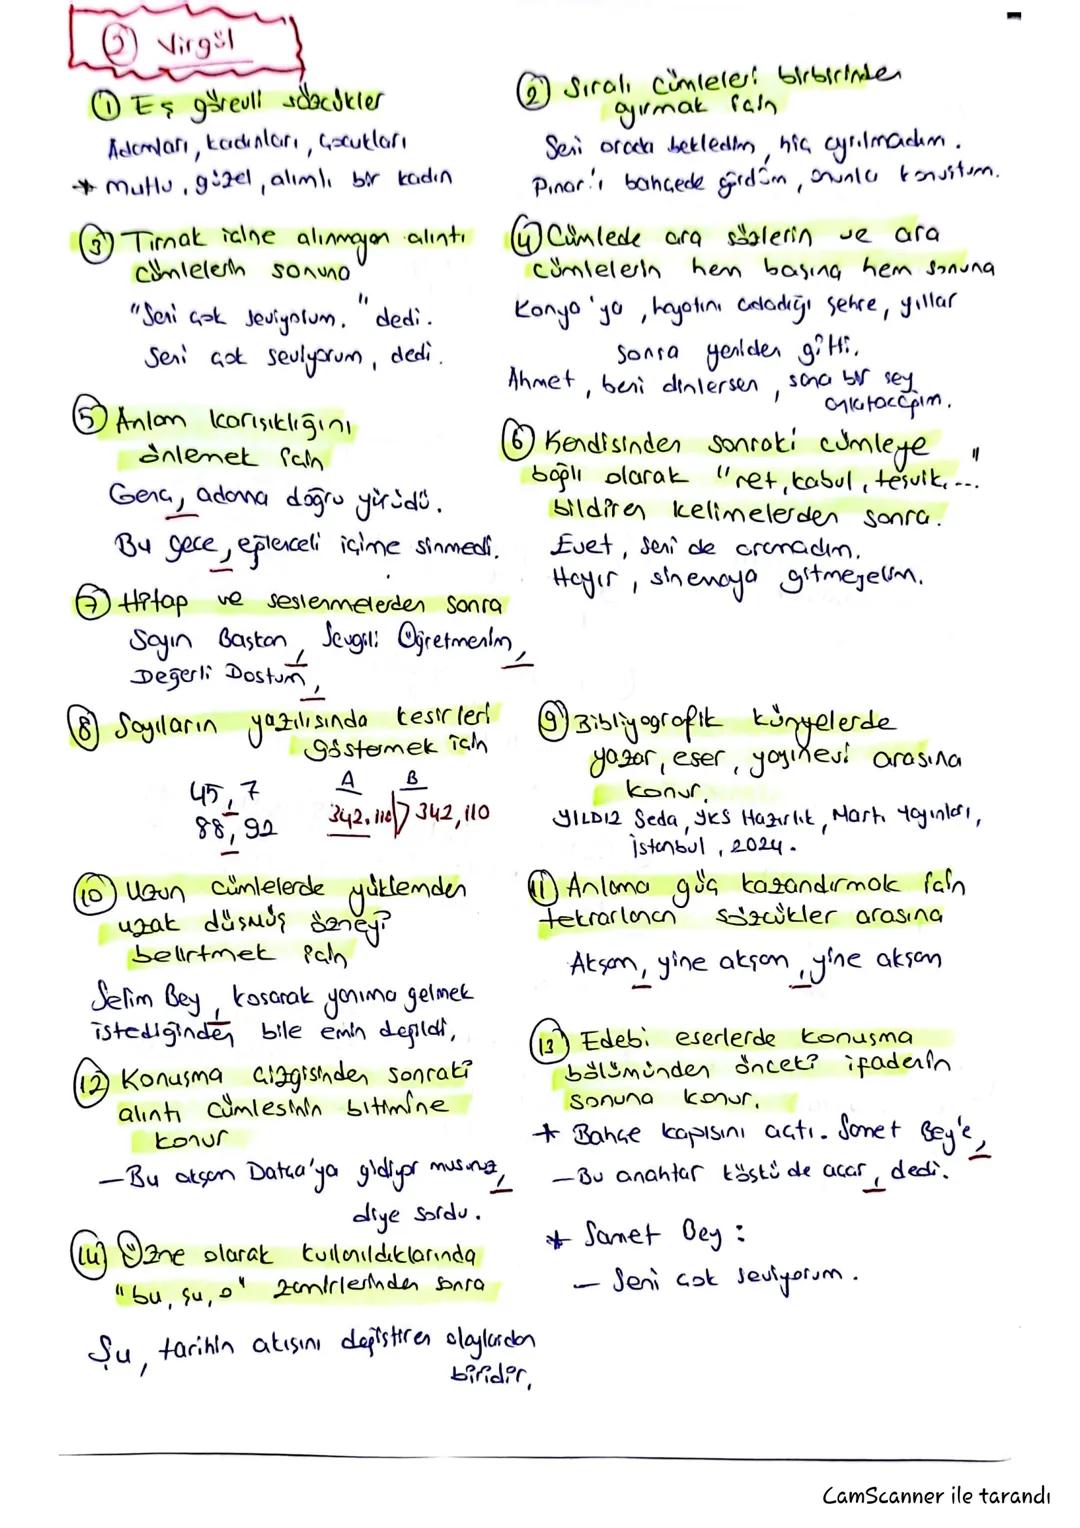 ② Virgül
① Eş görevli sözcükler
Adamları, kadınları, çocukları
* Mutlu, güzel, alımlı bir kadın
② Sıralı cümleleri birbirinden
ayırmak için
Seni orada bekledim, hiç ayrılmadım.
Pınar'ı bahçede gördüm, onunla konuştum.
③ Tırnak içine alınmayan alıntı
cümlelerin sonuna
"Seni çok seviyorum." dedi.
Seni çok seviyorum, dedi.
④ Cümlede ara sözlerin ve ara
cümlelerin hem başına hem sonuna
Konya'ya, hayatını adadığı şehre, yıllar
sonra yeniden gitti.
Ahmet, beni dinlersen, sana bir şey
anlatacağım.
⑤ Anlam karışıklığını
önlemek için
Genç, adama doğru yürüdü.
Bu gece, eğlenceli içime sinmedi.
⑥ Kendisinden sonraki cümleye
bağlı olarak "ret, kabul, teşvik, ..."
bildiren kelimelerden sonra.
Evet, seni de aramadım.
Hayır, sinemaya gitmeyelim.
⑦ Hitap ve seslenmelerden sonra
Sayın Başkan, Sevgili Öğretmenim,
Değerli Dostum,
⑧ Sayıların yazılışında kesirleri
göstermek için
45,7
88,92
A B
342.110 342,110
⑨ Bibliyografik künyelerde
yazar, eser, yayınevi arasına
konur.
YILDIZ Seda, YKS Hazırlık, Martı Yayınları,
İstanbul, 2024.
⑩ Uzun cümlelerde yüklemden
uzak düşmüş özneyi
belirtmek için
Selim Bey, koşarak yanıma gelmek
istediğinden bile emin değildi.
⑪ Anlama güç kazandırmak için
tekrarlanan sözcükler arasına
Akşam, yine akşam, yine akşam
⑫ Konuşma çizgisinden sonraki
alıntı cümlesinin bitimine
konur
– Bu akşam Datça'ya gidiyor musunuz,
diye sordu.
⑬ Edebi eserlerde konuşma
bölümünden önceki ifadenin
sonuna konur.
* Bahçe kapısını açtı. Samet Bey'e,
– Bu anahtar köşkü de açar, dedi.
* Samet Bey:
– Seni çok seviyorum.
⑭ Özne olarak kullanıldıklarında
"bu, şu, o" zamirlerinden sonra
Şu, tarihin akışını değiştiren olaylardan
biridir.
CamScanner ile tarandı